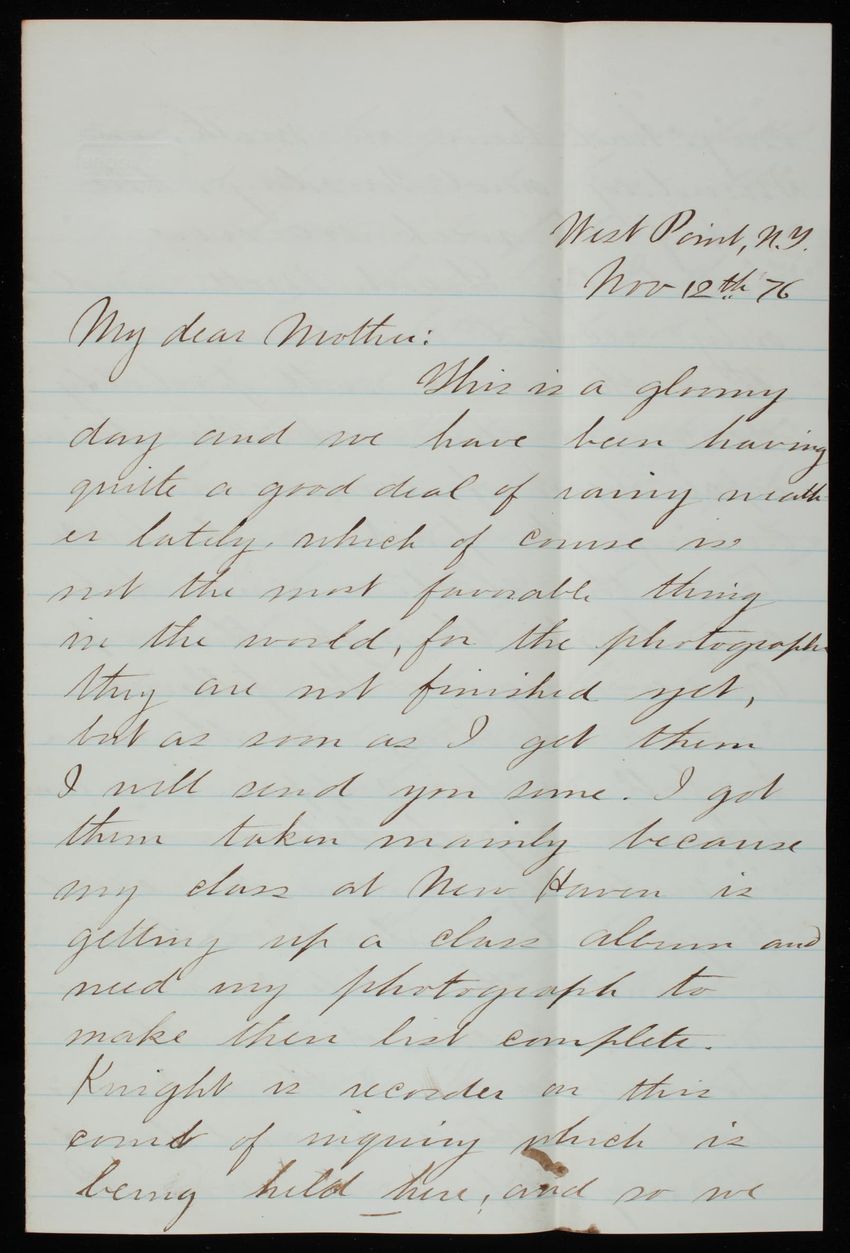 West Point, N.Y.
Nov 12th 76
My dear Mother:
This is a gloomy
day and we have been having
quite a good deal of rainy weath
er lately, which of course is
not the most favorable thing
in the world, for the photographs
they are not finished yet,
but as soon as I get them
I will send you some. I got
them taken mainly because
my class at New Haven is
getting up a class album and
need my photograph to
make their list complete.
Knight is recorder on this
court of inquiry which is
being held here, and so we